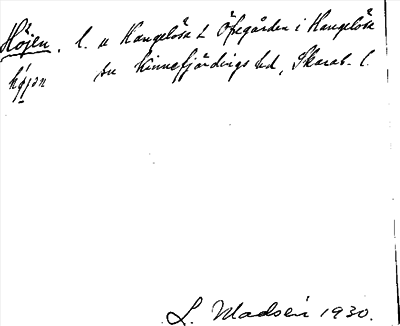 Höjen, l. u Hangelösa L Öfegården i Hangelösa
hö̀jen sn Kinnefjärdings hd, Skarab. l.
L. Madsén 1930.